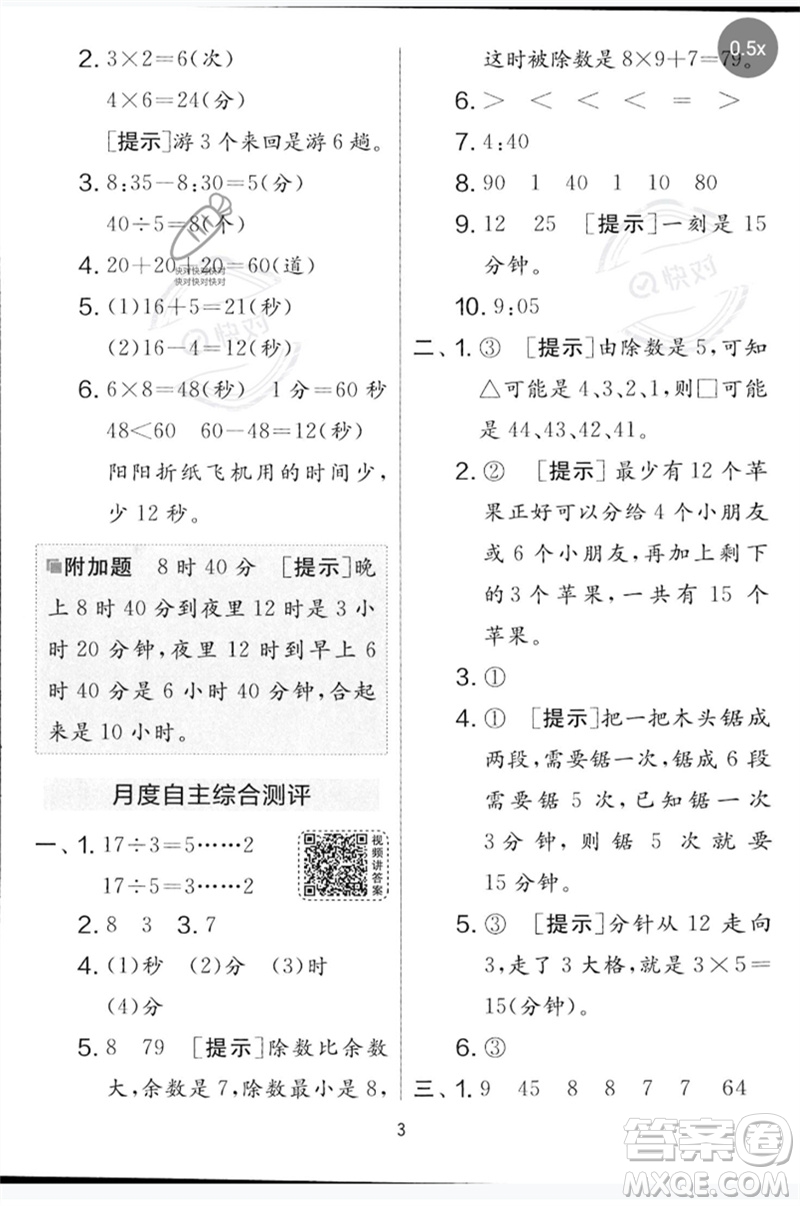 2. 3×2=6(次)
4×6=24(分)
[提示]游 3 个来回是游 6 趟。
3. 8:35-8:30=5(分)
40÷5=8(个)
4. 20+20+20=60(道)
快对快对快对
快对快对快对
5. (1)16+5=21(秒)
(2)16-4=12(秒)
快对
6. 6×8=48(秒) 1 分=60 秒
48<60 60-48=12(秒)
阳阳折纸飞机用的时间少,
少 12 秒。
附加题 8 时 40 分 [提示]晚
上 8 时 40 分到夜里 12 时是 3 小
时 20 分钟,夜里 12 时到早上 6
时 40 分是 6 小时 40 分钟,合起
来是 10 小时。
月度自主综合测评
一、1. 17÷3=5……2
17÷5=3……2
视频讲答案
2. 8 3 3. 7
4. (1)秒 (2)分 (3)时
(4)分
5. 8 79 [提示]除数比余数
大,余数是 7,除数最小是 8,
0.5x
这时被除数是 8×9+7=79。
6. > < < < = >
7. 4:40
8. 90 1 40 1 10 80
9. 12 25 [提示]一刻是 15
分钟。
快对
10. 9:05
二、1. ③ [提示]由除数是 5,可知
△可能是 4、3、2、1,则□可能
是 44、43、42、41。
2. ② [提示] 最少有 12 个苹
果正好可以分给 4 个小朋友
或 6 个小朋友,再加上剩下
的 3 个苹果,一共有 15 个
苹果。
3. ①
4. ① [提示]把一把木头锯成
两段,需要锯一次,锯成 6 段
需要锯 5 次,已知锯一次
3 分钟,则锯 5 次就要
15 分钟。
5. ③ [提示]分针从 12 走向
3,走了 3 大格,就是 3×5=
15(分钟)。
6. ③
三、1. 9 45 8 8 7 7 64
3
答案卷
MXQE.COM